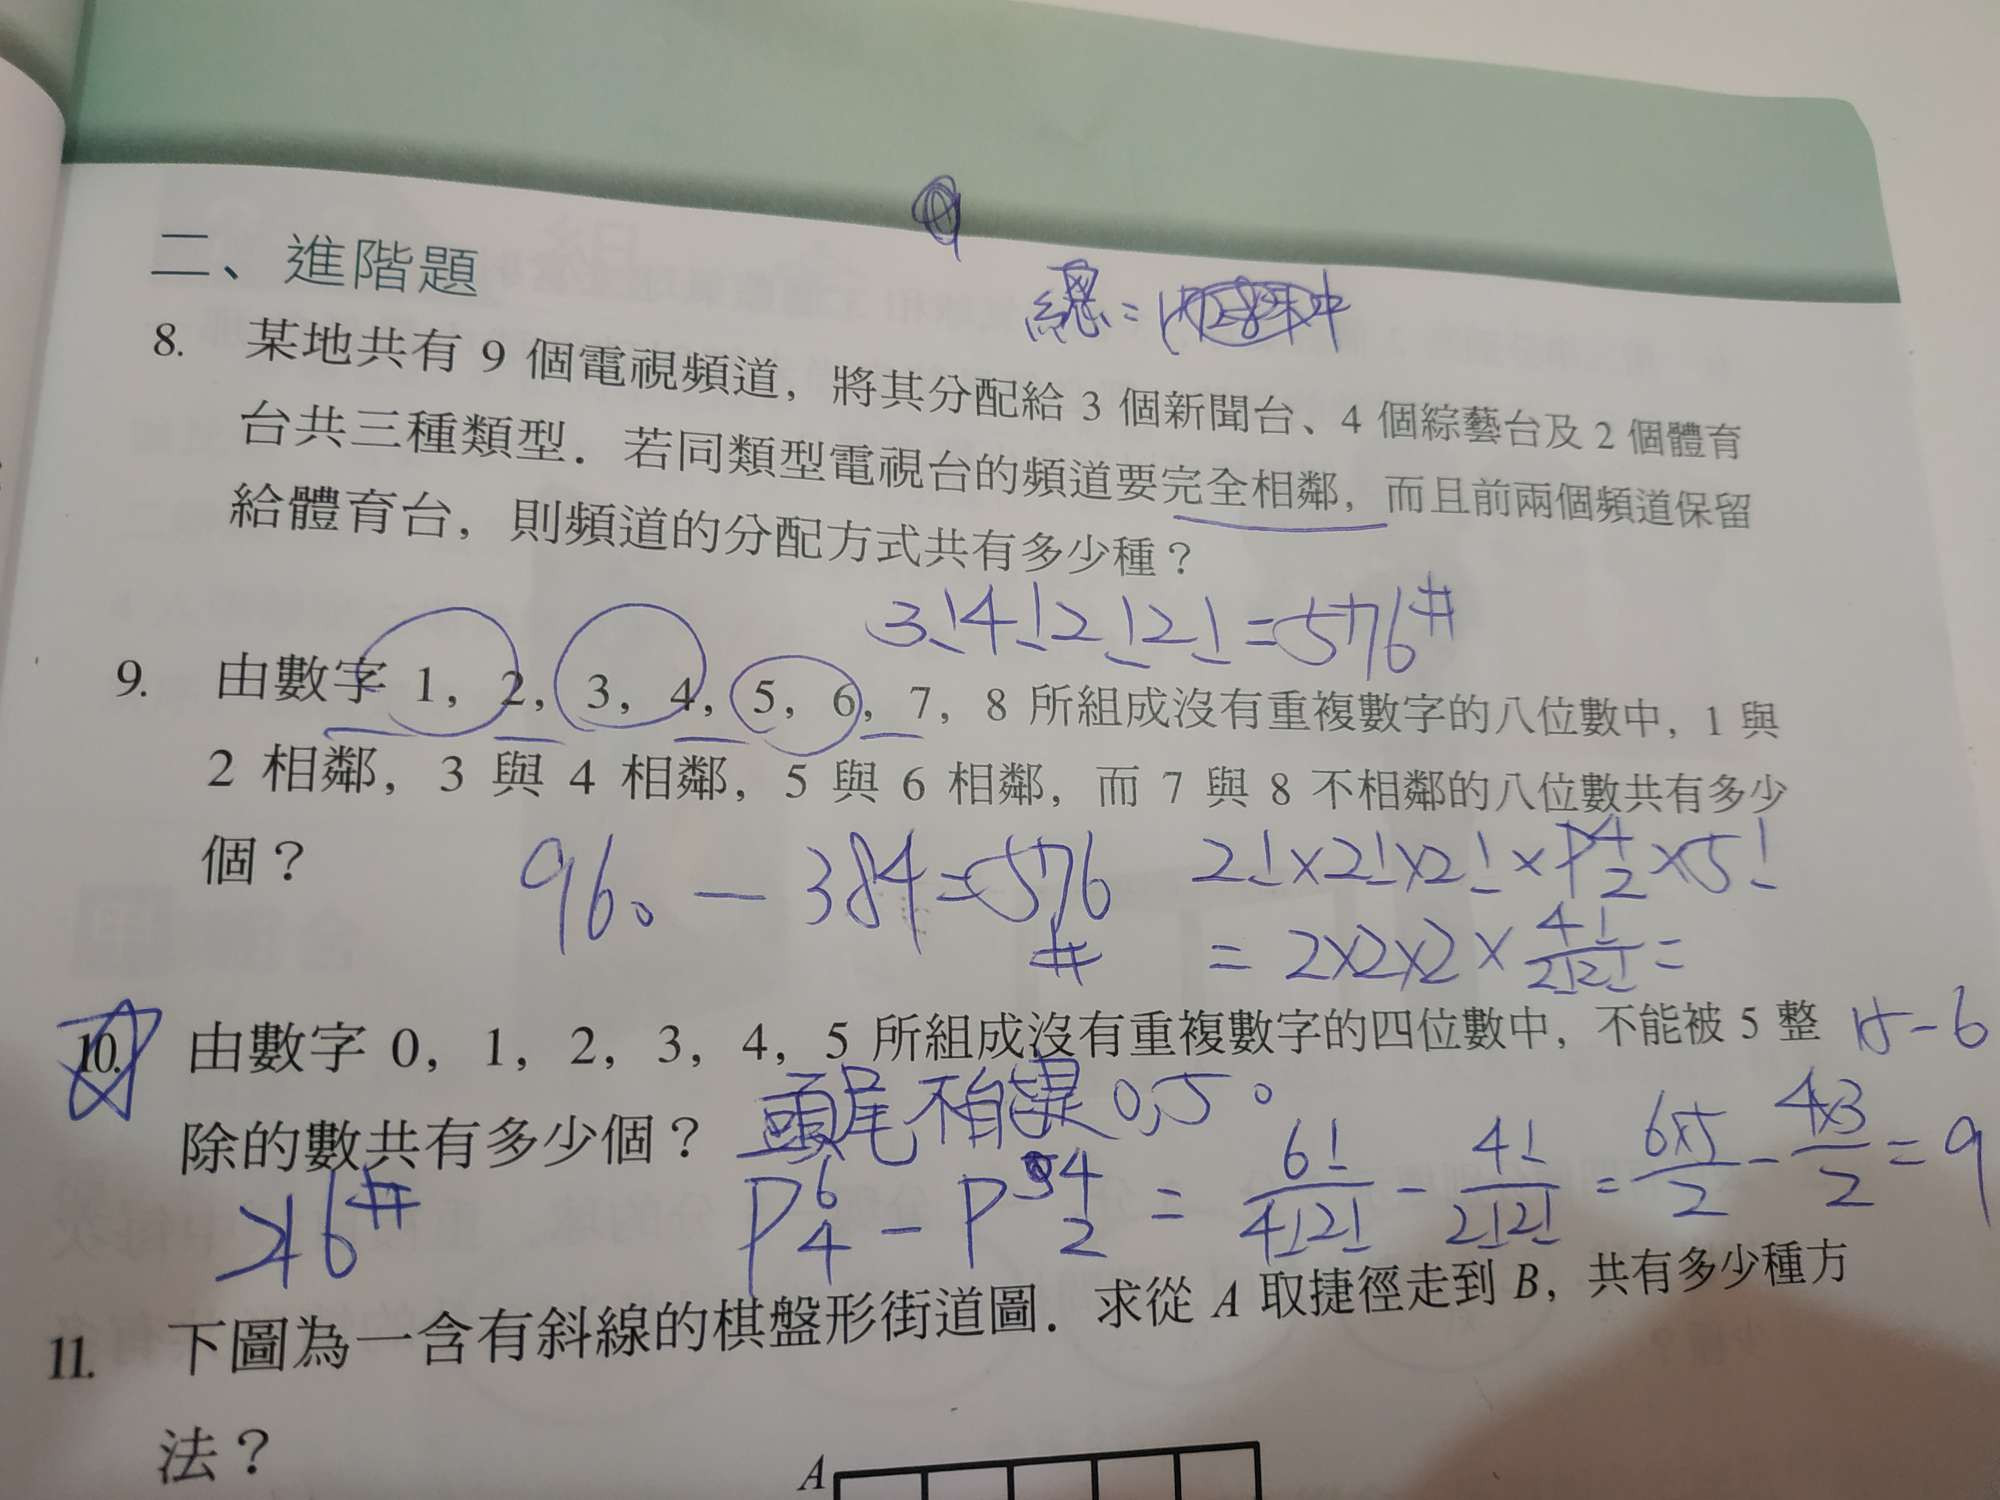 二、進階題
總=
8. 某地共有 9 個電視頻道，將其分配給 3 個新聞台、4 個綜藝台及 2 個體育
台共三種類型．若同類型電視台的頻道要完全相鄰，而且前兩個頻道保留
給體育台，則頻道的分配方式共有多少種？
3!4!2!2!=576#
9. 由數字 1，2，3，4，5，6，7，8 所組成沒有重複數字的八位數中，1 與
2 相鄰，3 與 4 相鄰，5 與 6 相鄰，而 7 與 8 不相鄰的八位數共有多少
個？
960-384=576#
2!×2!×2!×P⁴₂×5!
=2×2×2×4!/2!2!=
10. 由數字 0，1，2，3，4，5 所組成沒有重複數字的四位數中，不能被 5 整
15-6
除的數共有多少個？
頭尾不能是0,5。
P⁶₄-P⁴₂=6!/4!2!-4!/2!2!=6×5/2-4×3/2=9
11. 下圖為一含有斜線的棋盤形街道圖．求從 A 取捷徑走到 B，共有多少種方
法？
A